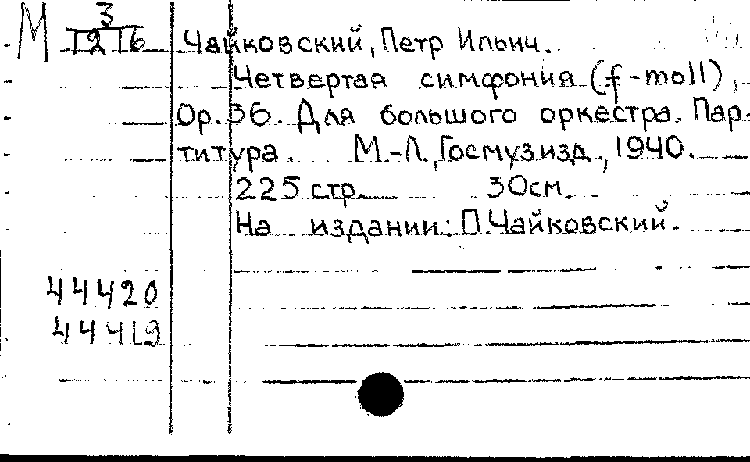 М 3
1216 Чайковский, Петр Ильич.
Четвертая симфония (f-moll),
Op.36. Для большого оркестра. Пар-
титура. М.-Л., Госмузизд., 1940.
225 стр. 30см.
На издании: П.Чайковский.
44420
44419